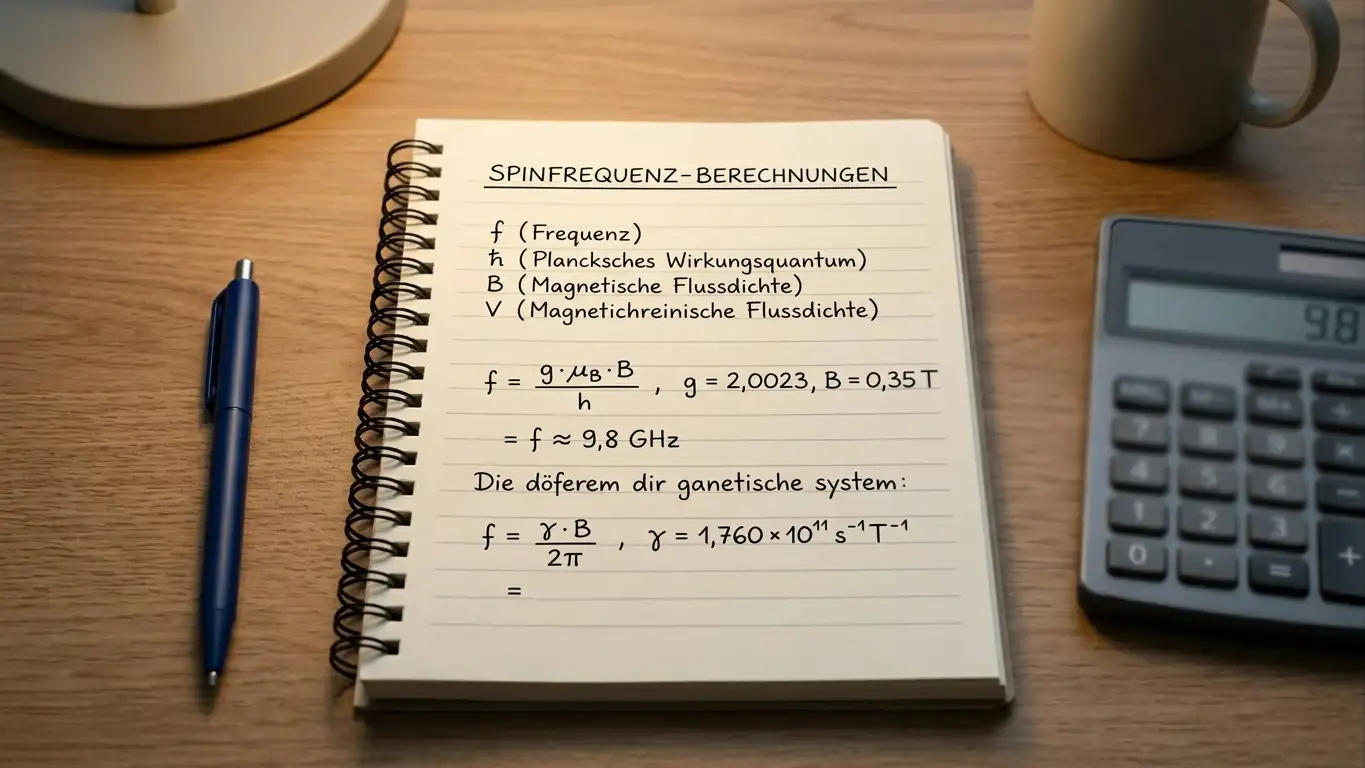 SPINFREQUENZ-BERECHNUNGEN
f (Frequenz)
ħ (Plancksches Wirkungsquantum)
B (Magnetische Flussdichte)
V (Magnetichreinische Flussdichte)
f = g·μ_B·B / h , g = 2,0023, B = 0,35 T
= f ≈ 9,8 GHz
Die döferem dir ganetische system:
f = γ·B / 2π , γ = 1,760 × 10¹¹ s⁻¹ T⁻¹
=
9.8
7 8 9 ×
4 5 6 −
1 2 3 +
0 · =